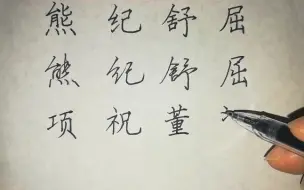 熊 纪 舒 屈
熊 纪 舒 屈
项 祝 董